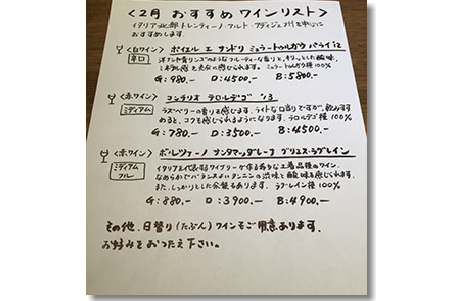 <2月 おすすめ ワインリスト>
イタリア北部 トレンティーノ アルト アディジェ州を中心に
おすすめします。
<白ワイン> ポイエル エ サンドリ ミュラートゥルガウ パライ '12
辛口 洋ナシや青リンゴのようなフルーティーな香りと、キリッとした酸味、
ミネラル感を充分に感じられます。ミュラートゥルガウ種100%
G: 980.- D: 4500.- B: 5800.-
<赤ワイン> コンチリオ テロルデゴ '13
ミディアム ラズベリーの香りを感じます。ライトな口当りですが、飲みすすめると、
コクも感じられるようになります。テロルデゴ種 100%
G: 780.- D: 3500.- B: 4500.-
<赤ワイン> ボルツァーノ サンタマッダレーナ グリエス・ラグレイン
ミディアムフル イタリアを代表するワイナリーが造る希少な土着品種のワイン。
なめらかでバランスよいタンニンの渋味と酸味を感じられます。
また、しっかりとした余韻もあります。ラグレイン種 100%
G: 880.- D: 3900.- B: 4900.-
その他、日替り(たぶん)ワインもご用意あります。
お好みをおつたえ下さい。